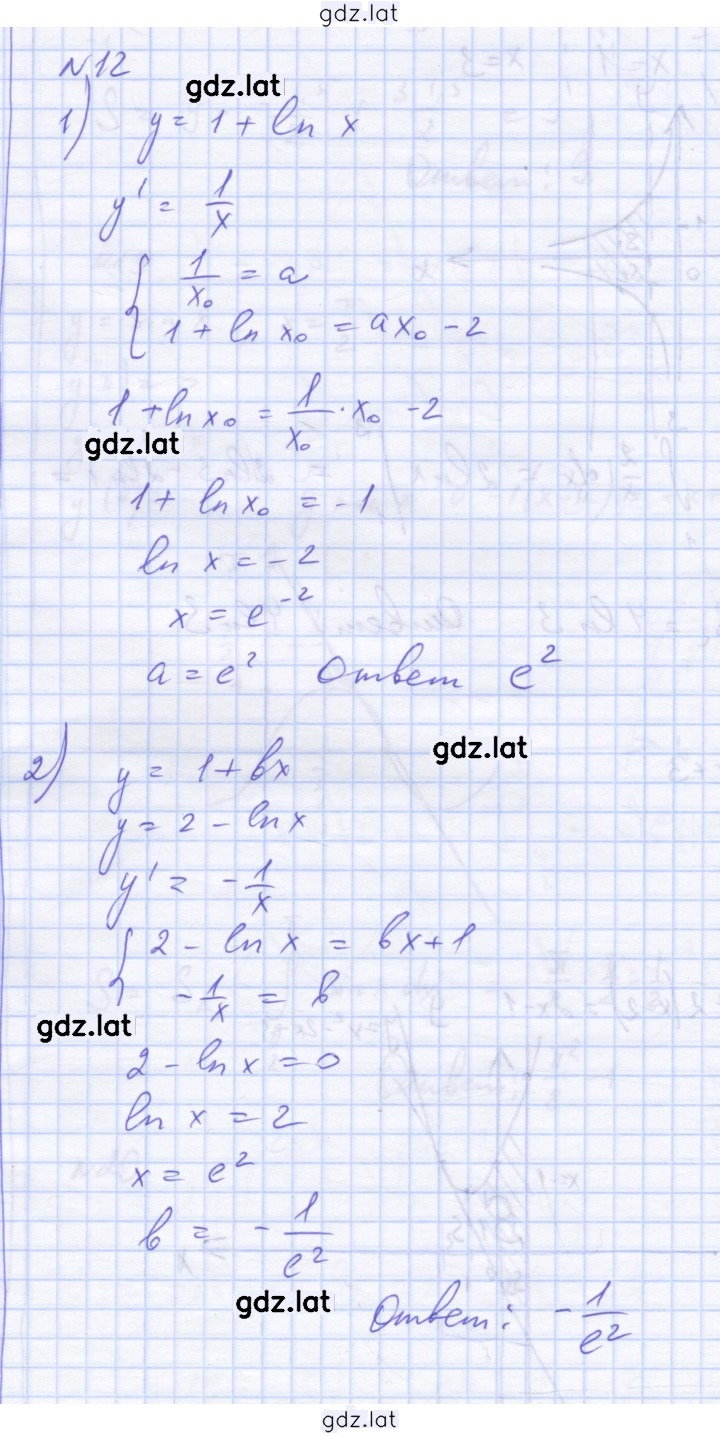 gdz.lat
№12
gdz.lat
1) y = 1 + ln x
y' = 1/x
{ 1/x₀ = a
1 + ln x₀ = ax₀ - 2
1 + ln x₀ = 1/x₀ · x₀ - 2
gdz.lat
1 + ln x₀ = -1
ln x = -2
x = e⁻²
a = e² Ответ e²
gdz.lat
2) y = 1 + bx
y = 2 - ln x
y' = -1/x
{ 2 - ln x = bx + 1
-1/x = b
gdz.lat
2 - ln x = 0
ln x = 2
x = e²
b = -1/e²
gdz.lat
Ответ: -1/e²
gdz.lat